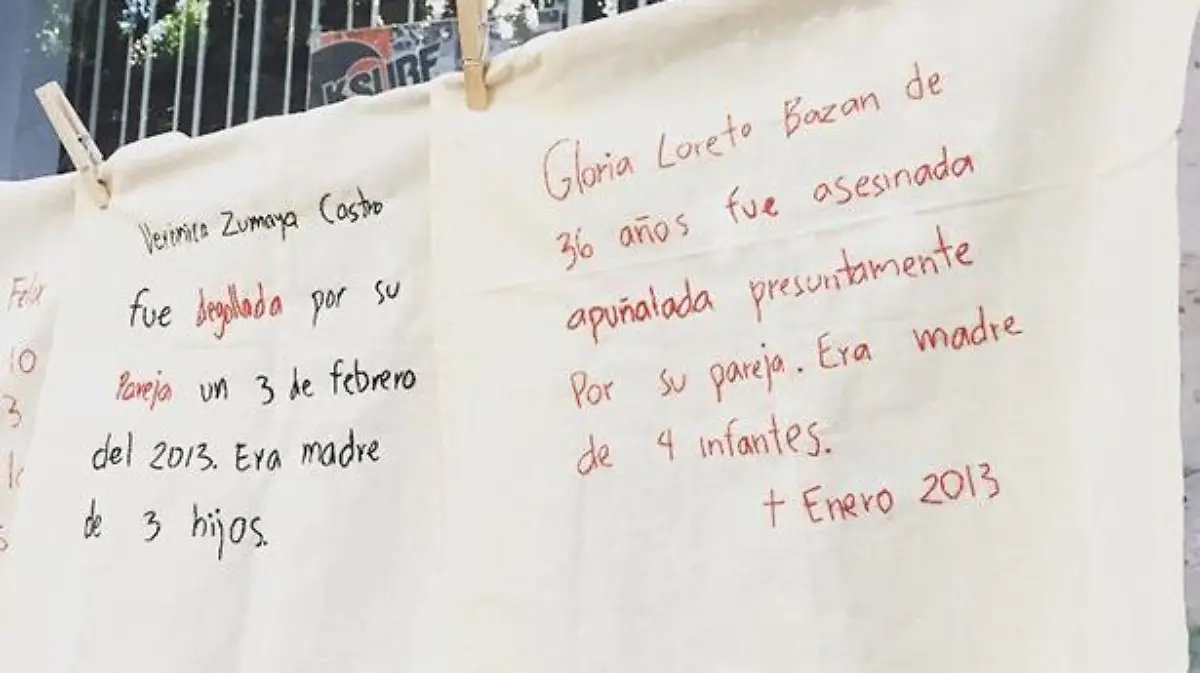 KSURF
Felix
10
3
Veronica Zumaya Castro
fue degollada por su
Pareja un 3 de febrero
del 2013. Era madre
de 3 hijos.
Gloria Loreto Bazan de
36 años fue asesinada
apuñalada presuntamente
Por su pareja. Era madre
de 4 infantes.
† Enero 2013